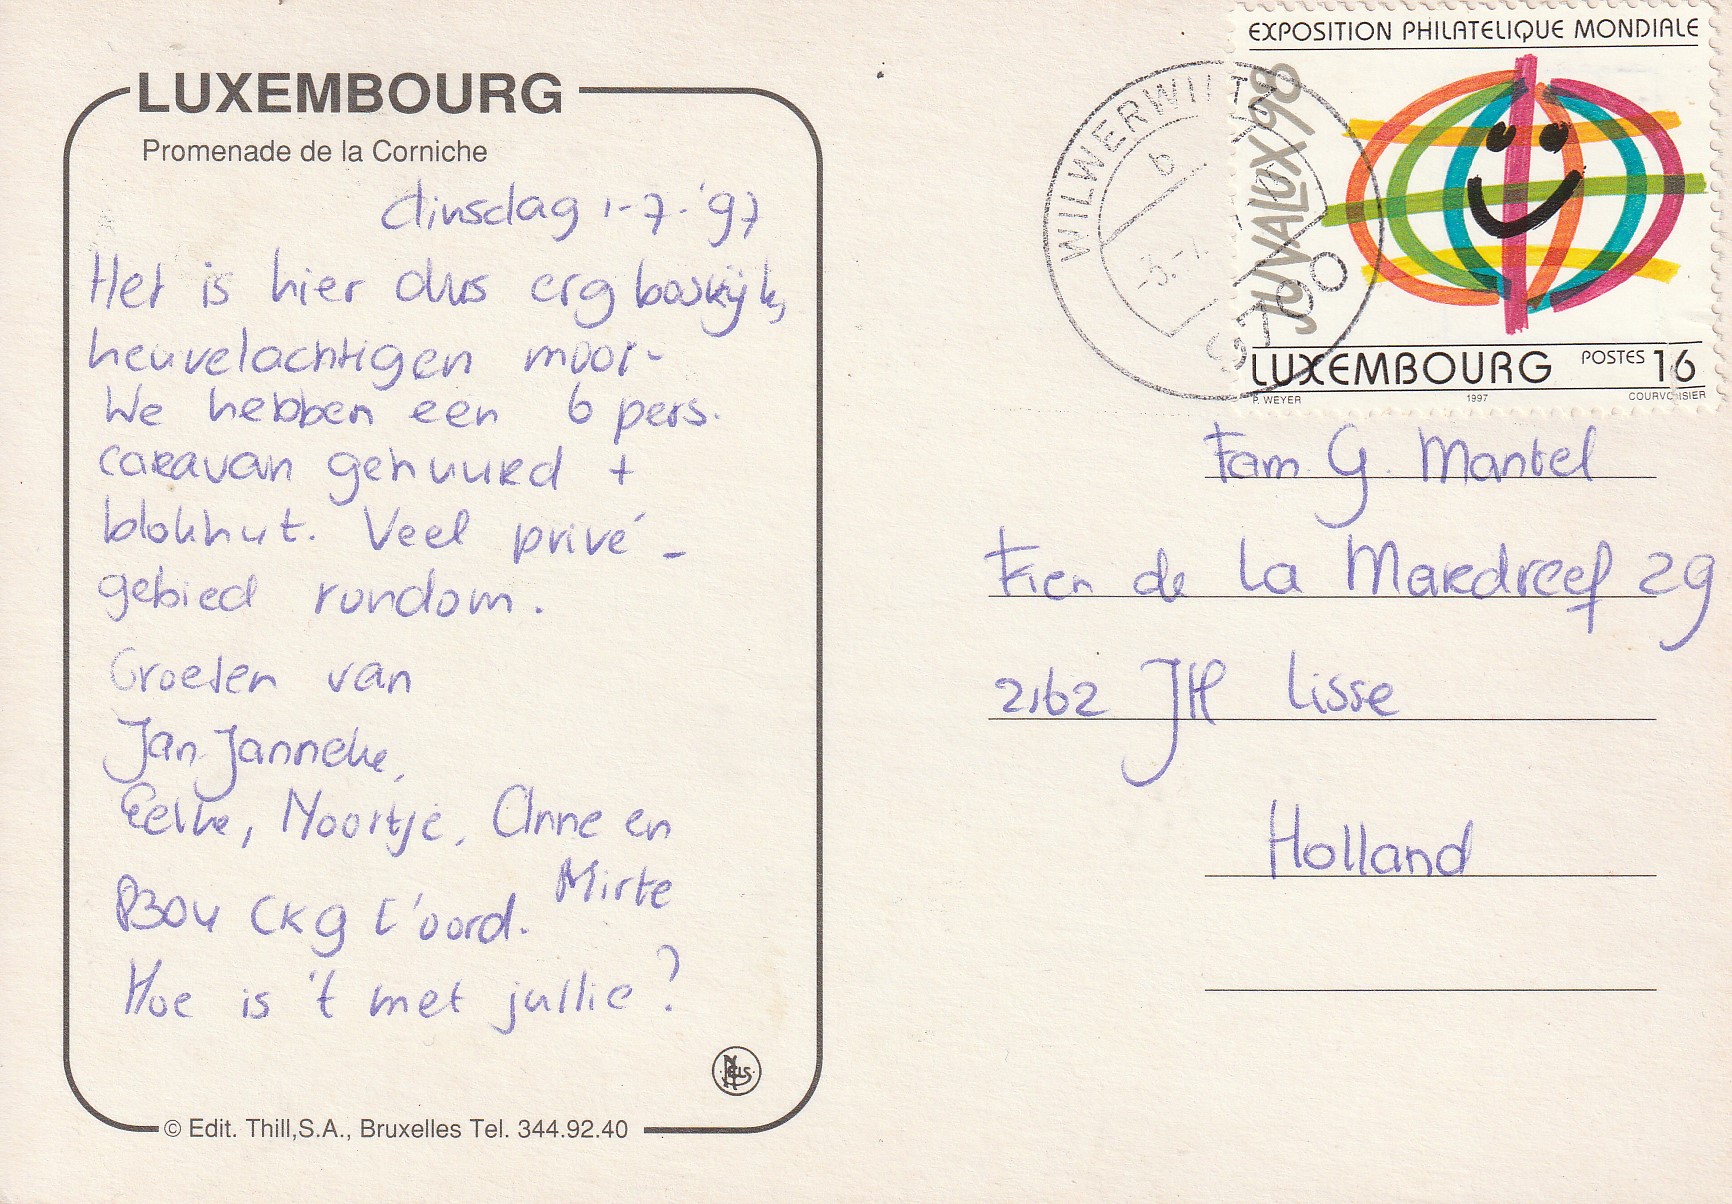 LUXEMBOURG
Promenade de la Corniche
dinsdag 1-7-'97
Het is hier dus erg bosrijk,
heuvelachtig en mooi-
We hebben een 6 pers.
caravan gehuurd +
blokhut. Veel privé-
gebied rondom.
Groeten van
Jan Janneke,
Eelke, Noortje, Anne en
Mirte
CKG t'oord.
Hoe is 't met jullie?
NELS
© Edit. Thill,S.A., Bruxelles Tel. 344.92.40
WILWERWILTZ
b
-3.-7.
9790
EXPOSITION PHILATELIQUE MONDIALE
JUVALUX/98
LUXEMBOURG POSTES 16
P. WEYER 1997 COURVOISIER
Fam. G. Mantel
Fien de la Mardreef 29
2162 JH Lisse
Holland